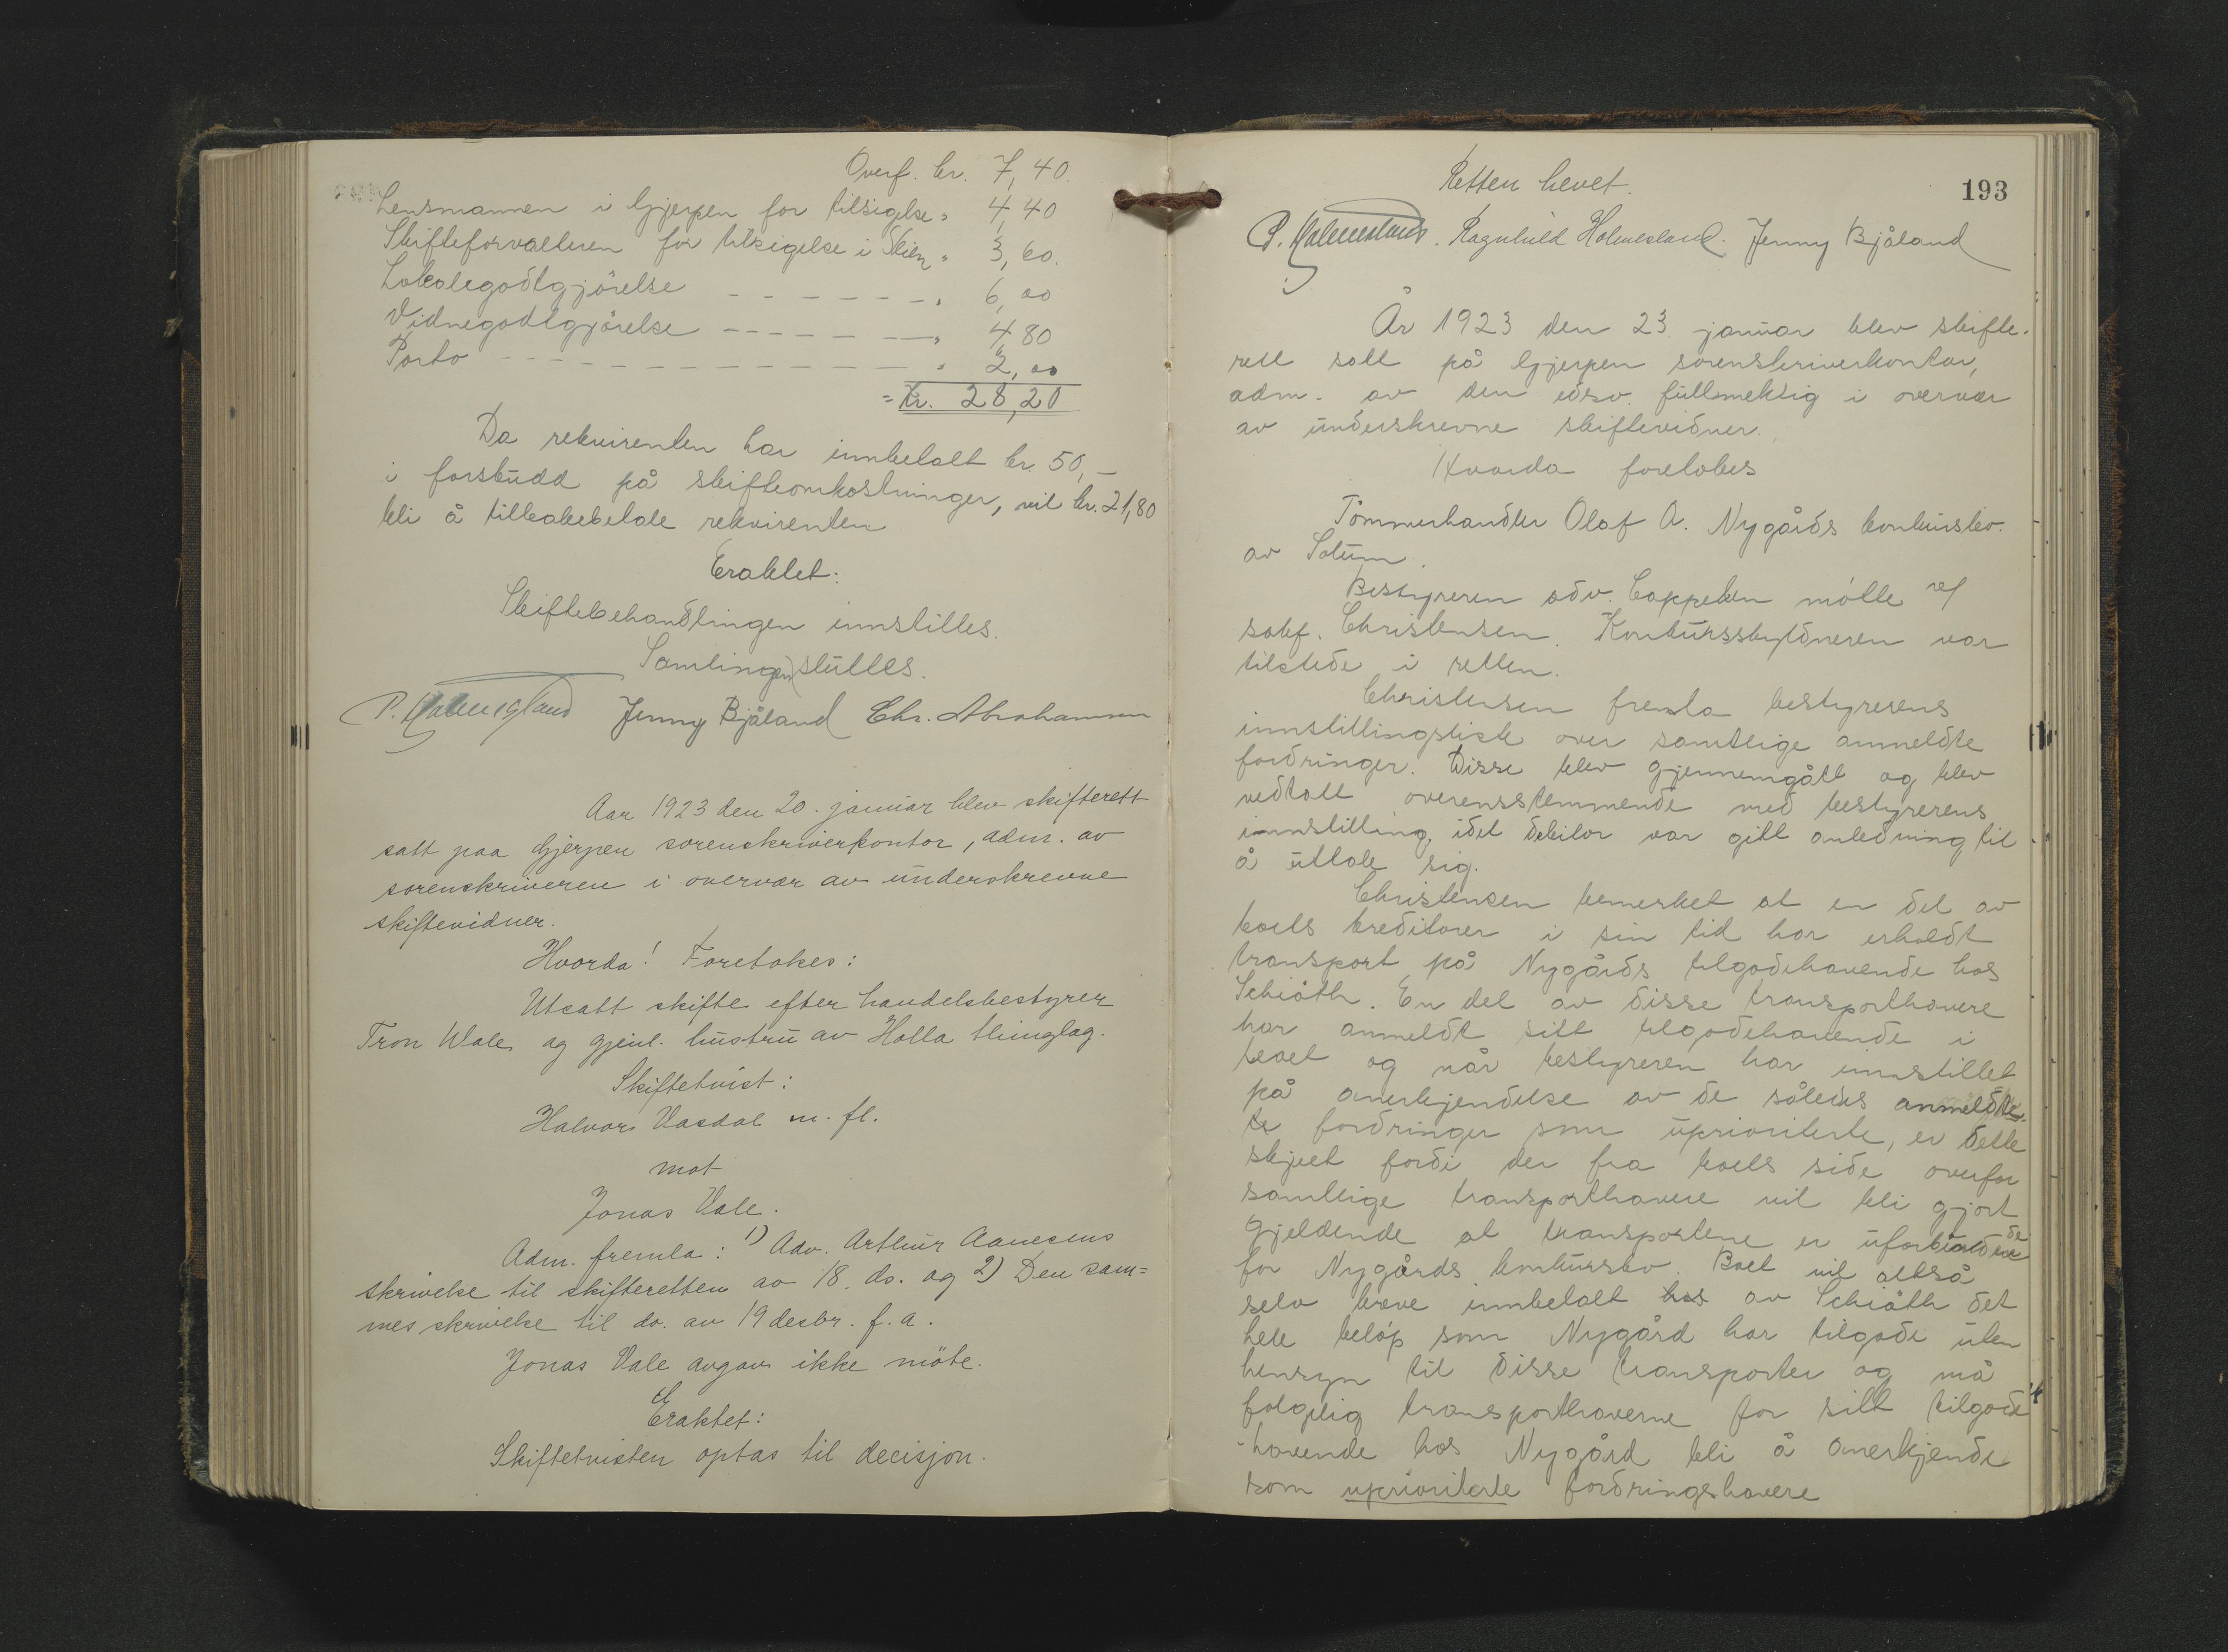 Overf. kr. 7,40.
Lensmannen i Gjerpen for tilsigelse " 4,40
Skifteforvalteren for tilsigelse i Skien " 3,60.
Lokalegodtgjörelse - - - - - - - " 6,00
Vidnegodtgjörelse - - - - - - - " 4 80
Porto - - - - - - - - - - - - " 2,00
= Kr. 28,20
Da rekvirenten har innbetalt kr. 50,-
i forskudd på skifteomkostninger, vil kr. 21,80
bli å tilbakebetale rekvirenten
Eraktet:
Skiftebehandlingen innstilles.
Samlingen sluttes.
P. Holmesland Jenny Bjåland Chr. Abrahamsen
Aar 1923 den 20. januar blev skifterett
satt paa Gjerpen sorenskriverkontor, adm. av
sorenskriveren i overvær av underskrevne
skiftevidner.
Hvorda! Foretokes:
Utsatt skifte efter handelsbestyrer
Tron Wale og gjenl. hustru av Holla thinglag.
Skiftetvist:
Halvor Vasdal m. fl.
mot
Jonas Vale.
Adm. fremla: 1) Adv. Arthur Aanesens
skrivelse til skifteretten av 18. ds. og 2) Den sam=
mes skrivelse til do. av 19 desbr. f. a.
Jonas Vale avgav ikke möte.
Eraktet:
Skiftetvisten optas til decisjon.
193
Retten hevet.
P. Holmesland. Ragnhild Holmesland. Jenny Bjåland
År 1923 den 23 januar blev skifte-
rett satt på Gjerpen sorenskriverkontor,
adm. av den edsv. fullmektig i overvær
av underskrevne skiftevidner.
Hvorda foretokes
Tömmerhandler Olaf A. Nygårds konkursbo.
av Solum.
Bestyreren adv. Cappelen mötte ved
sakf. Christensen. Konkursskyldneren var
tilstede i retten.
Christensen fremla bestyrerens
innstillingsliste over samtlige anmeldte
fordringer. Disse blev gjennemgått og blev
vedtatt overensstemmende med bestyrerens
innstilling, idet debitor var gitt anledning til
å uttale sig.
Christensen bemerket at en del av
boets kreditorer i sin tid har erholdt
transport på Nygårds tilgodehavende hos
Schiöth. En del av disse transporthavere
har anmeldt sitt tilgodehavende i
boet og når bestyreren har innstillet
på anerkjendelse av de således anmeldte
te fordringer som uprioriterte, er dette
skjeet fordi der fra boets side overfor
samtlige transporthavere vil bli gjort
gjeldende at transportene er uforbindende
for Nygårds konkursbo. Boet vil altså
selv kreve innbetalt hos av Schiöth det
hele belöp som Nygård har tilgode uten
hensyn til disse transporter og må
folgelig transporthaverne for sitt tilgode
-havende hos Nygård bli å anerkjende
som uprioriterte fordringshavere